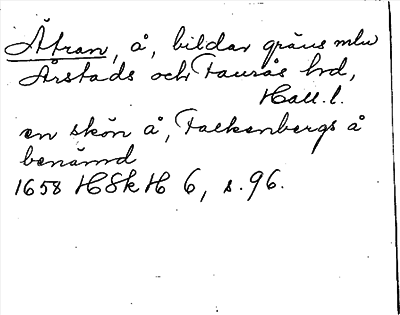 Ätran, å, bildar gräns mlu
Årstads och Faurås hd,
Hall. l.
en skön å, Falkenbergs å
benämnd
1658 HSkH 6, s. 96.